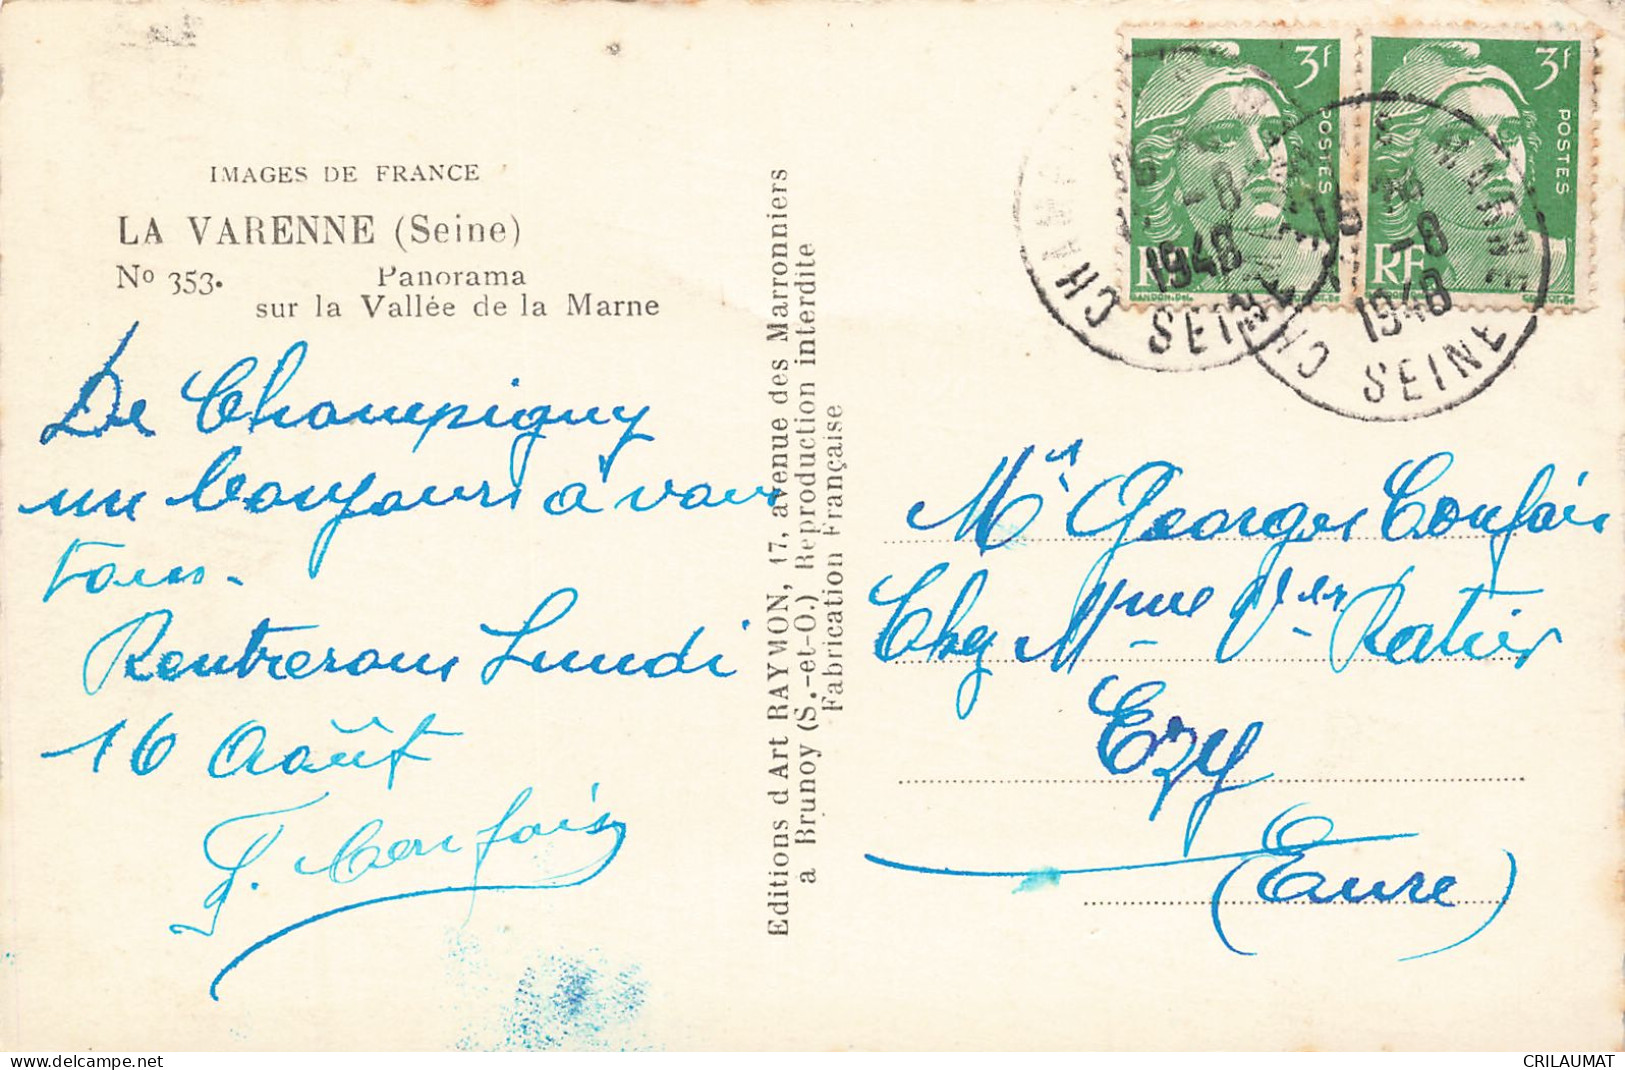 IMAGES DE FRANCE
LA VARENNE (Seine)
No 353. Panorama
sur la Vallée de la Marne
De Champigny
un bonjour à vous
tous.
Rentrerons Lundi
16 Août
Editions d'Art RAYMON, 17, avenue des Marronniers
a Brunoy (S.-et-O.) Reproduction interdite
Fabrication Française
3f
POSTES
RF
GANDON.Del
3f
POSTES
RF
-8
1948
SEINE
16
-8
1948
SEINE
Mr Georges Confais
Chez Mme Vve Ratier
Ezy
(Eure)
delcampe.net
CRILAUMAT